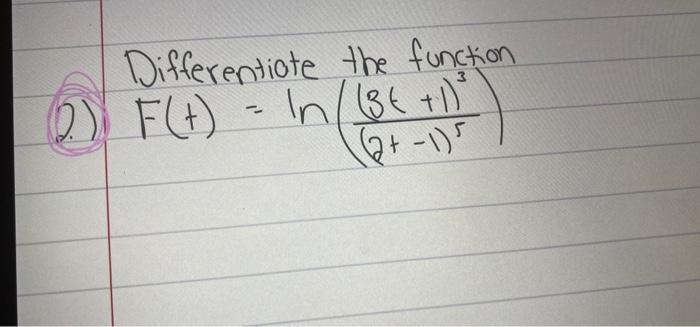 Differentiate the function
2.) F(t) = ln((3t+1)^3/(2t-1)^5)